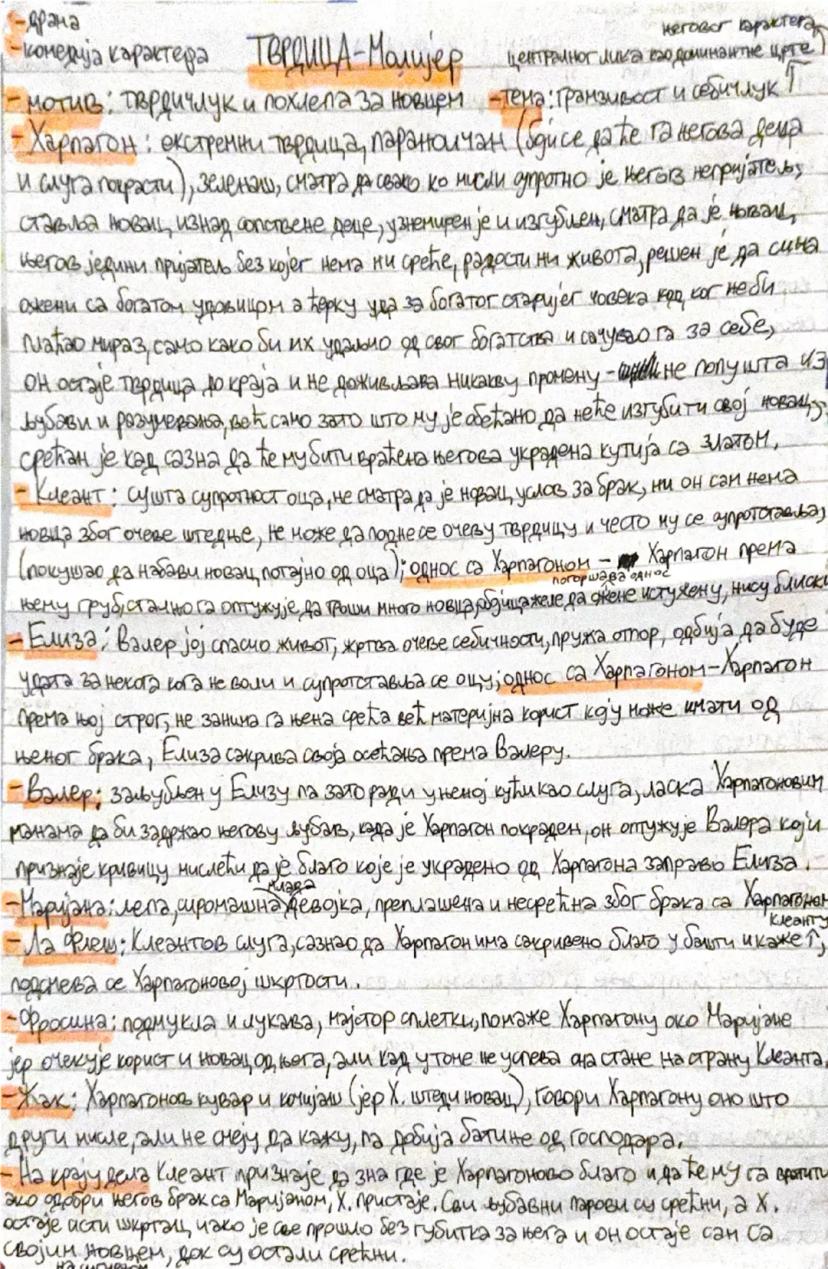 -драма
-комедија карактера ТВРДИЦА-Молијер централног лика као доминантне црте његовог карактера
-мотив: тврдичлук и похлепа за новцем -тема: грамзивост и себичлук
-Харпагон: екстремни тврдица, параноичан (боји се да ће га његова деца
и слуга покрасти), зеленаш, сматра да свако ко мисли супротно је његов непријатељ,
ставља новац изнад сопствене деце, узнемирен је и изгубљен, сматра да је новац
његов једини пријатељ без којег нема ни среће, радости ни живота, решен је да сина
ожени са богатом удовицом а ћерку уда за богатог старијег човека код ког не би
плаћао мираз, само како би их удаљио од свог богатства и сачувао га за себе,
он остаје тврдица до краја и не доживљава никакву промену - не попушта из
љубави и разумевања, већ само зато што му је обећано да неће изгубити свој новац,
срећан је кад сазна да ће му бити враћена његова украдена кутија са златом.
-Клеант: сушта супротност оца, не сматра да је новац услов за брак, ни он сам нема
новца због очеве штедње, не може да поднесе очеву тврдицу и често му се супротставља,
(покушао да набави новац потајно од оца); однос са Харпагоном - Харпагон према
њему груб, стално га оптужује да троши много новца, обојица желе да ожене исту жену, нису блиски
погоршава однос
-Елиза: Валер јој спасио живот, жртва очеве себичности, пружа отпор, одбија да буде
удата за некога кога не воли и супротставља се оцу; однос са Харпагоном-Харпагон
према њој строг, не занима га њена срећа већ материјна корист коју може имати од
њеног брака, Елиза сакрива своја осећања према Валеру.
-Валер: заљубљен у Елизу па зато ради у њеној кући као слуга, ласка Харпагоновим
манама да би задржао његову љубав, када је Харпагон покраден, он оптужује Валера који
признаје кривицу мислећи да је благо које је украдено од Харпагона заправо Елиза.
-Маријана: лепа, сиромашна млада девојка, преплашена и несрећна због брака са Харпагоном
-Ла Флеш: Клеантов слуга, сазнао да Харпагон има сакривено благо у башти и каже Клеанту,
подсмева се Харпагоновој шкртости.
-Фросина: подмукла и лукава, мајстор сплетки, помаже Харпагону око Маријане
јер очекује корист и новац од њега, али кад у томе не успева она стане на страну Клеанта.
-Жак: Харпагонов кувар и кочијаш (јер Х. штеди новац), говори Харпагону оно што
други мисле, али не смеју да кажу, па добија батине од господара.
-На крају дела Клеант признаје да зна где је Харпагоново благо и да ће му га вратити
ако одобри његов брак са Маријаном, Х. пристаје. Сви љубавни парови су срећни, а Х.
остаје исти шкртац иако је све прошло без губитка за њега и он остаје сам са
својим новцем, док су остали срећни.